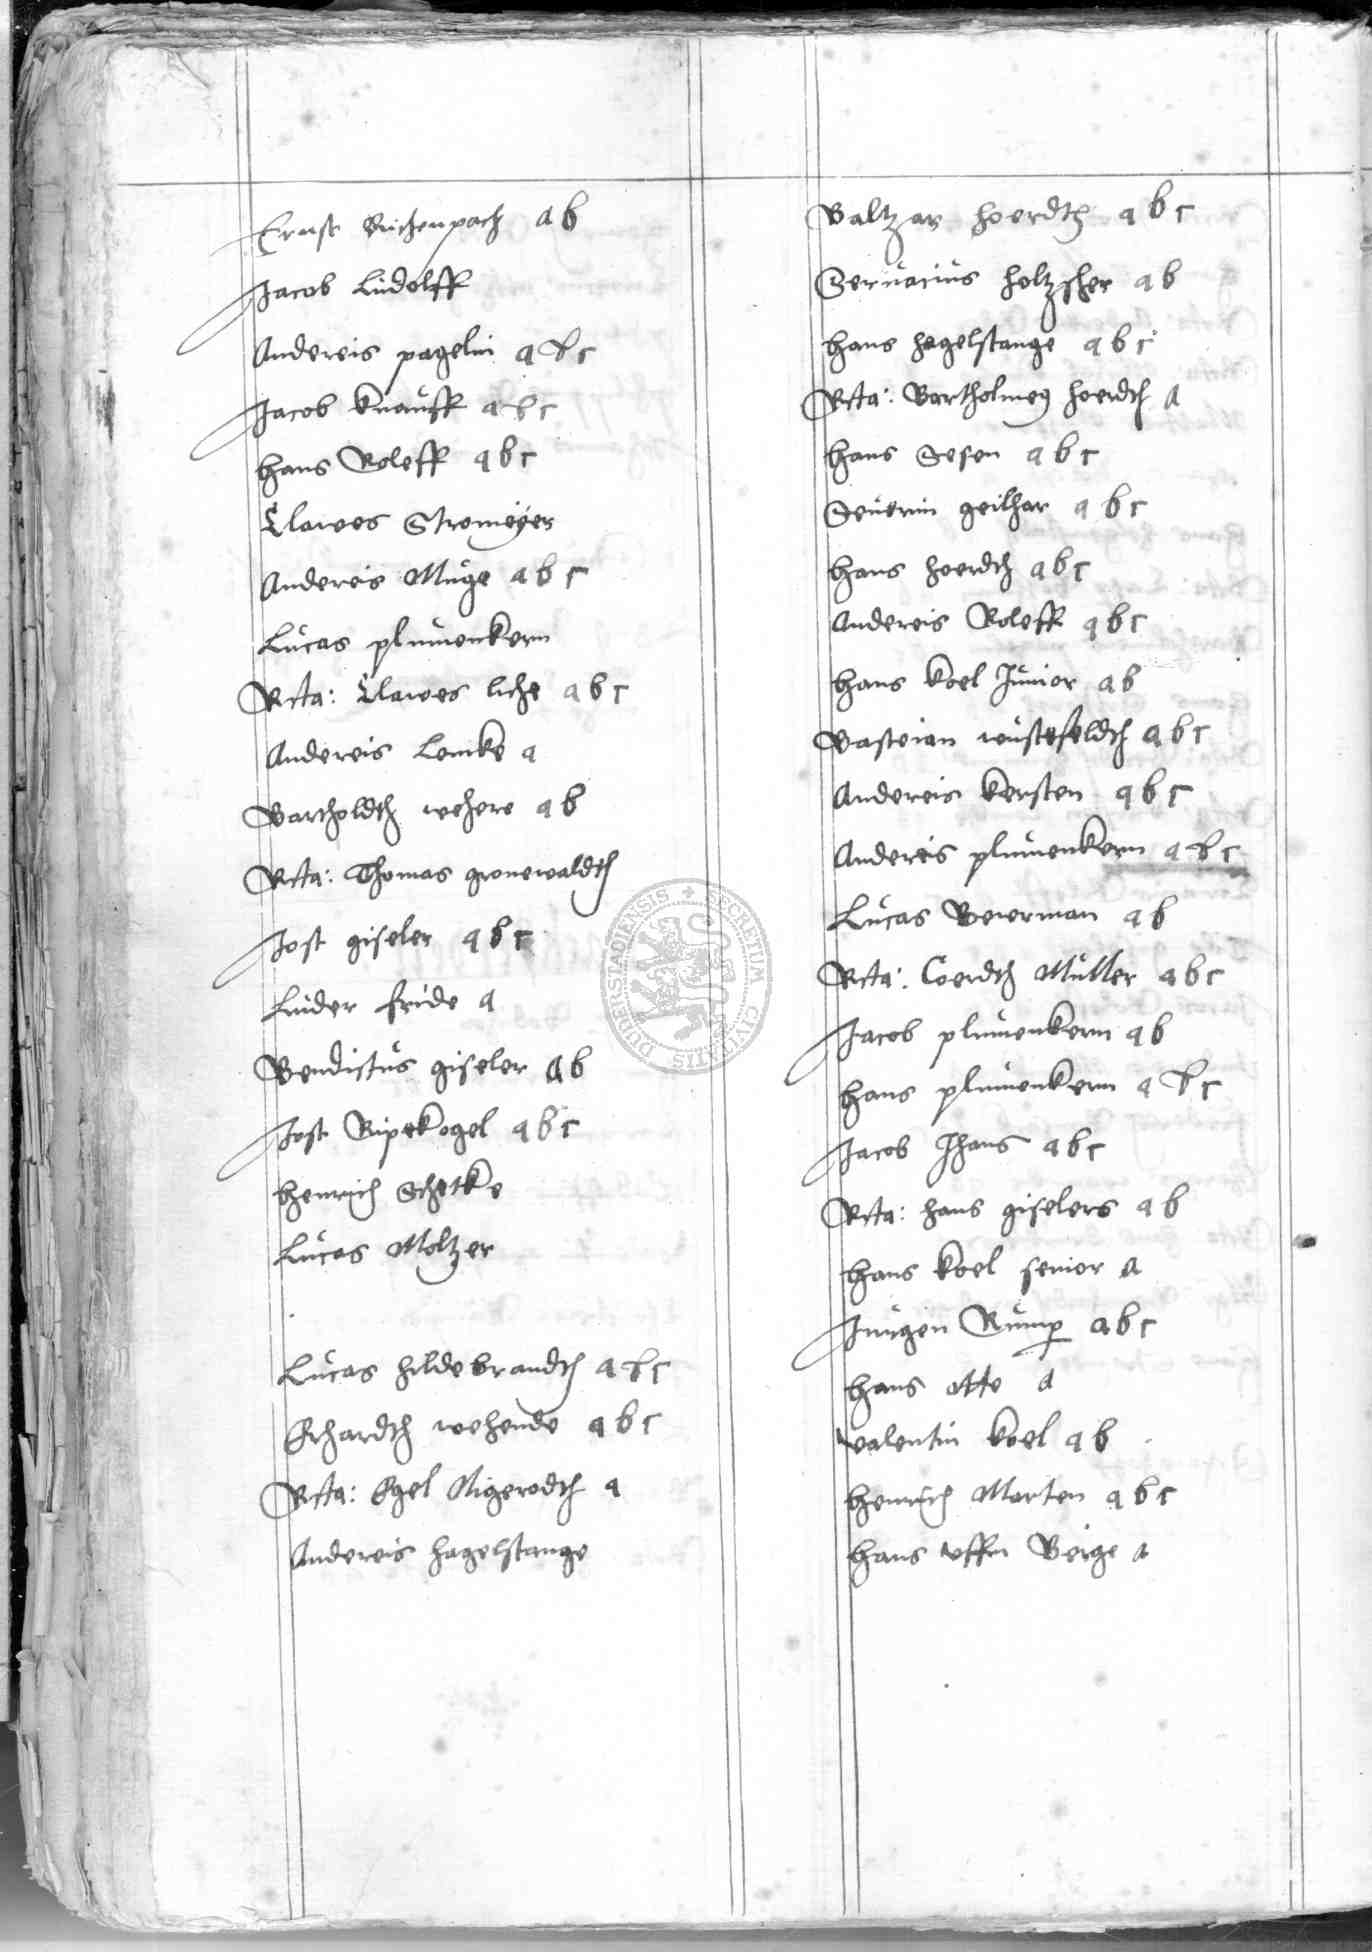 Ernst Buchenpach a b
Jacob Ludolff
Andereis pagelin a b c
Jacob Knauff a b c
hans Roleff a b c
Clawes Stromeyer
Andereis Muge a b c
Lucas plumenkern
Rcta: Clawes liche a b c
Andereis Lemke a
Bartholdth wehere a b
Rcta: Thomas gronewaldth
Jost giseler a b c
Luder fride a
Bendictus giseler a b
Jost Ripekogel a b c
Henrich Schetke
Lucas Moltzer
Lucas hildebrandth a b c
Erhardth wehende a b c
Rcta: Egel Nigerodth a
Andereis hagelstange
Baltzar hoerdth a b c
Servacius holtzscher a b
hans hagelstange a b c
Rcta: Bartholmeg hoerdth a
hans Sesen a b c
Severin geilhar a b c
hans hoerdth a b c
Andereis Roleff a b c
hans Koel Junior a b
Basteian wustefeldth a b c
Andereis Kersten a b c
Andereis plumenkern a b c
Lucas Beierman a b
Rcta: Coerdth Muller a b c
Jacob plumenkern a b
hans plumenkern a b c
Jacob Jhans a b c
Rcta: hans giselers a b
hans Koel senior a
Jurgen Rump a b c
hans otte a
valentin Koel a b
Henrich Marten a b c
hans uffm Berge a
SECRETUM CIVITATIS DUDERSTADIENSIS